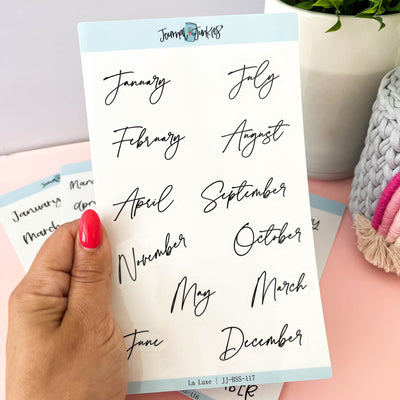 Journal Junkies
January July
February August
April September
November October
May March
June December
La Luxe | JJ-BSS-117
January
March
Mar
Apri